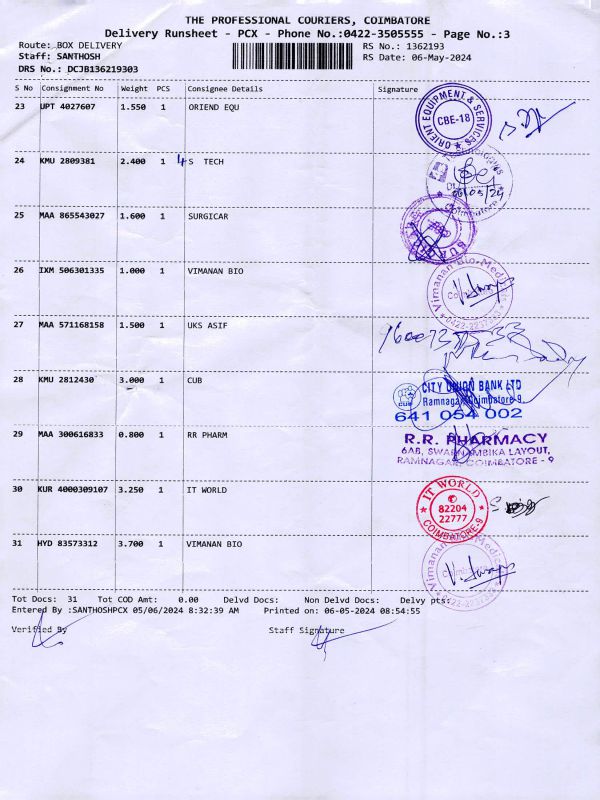 THE PROFESSIONAL COURIERS, COIMBATORE
Delivery Runsheet - PCX - Phone No.:0422-3505555 - Page No.:3
Route: BOX DELIVERY RS No.: 1362193
Staff: SANTHOSH RS Date: 06-May-2024
DRS No.: DCJB136219303
S No Consignment No Weight PCS Consignee Details Signature
23 UPT 4027607 1.550 1 ORIEND EQU
ORIENT EQUIPMENT & SERVICES
CBE-18
24 KMU 2809381 2.400 1 4 S TECH
06/05/24
Coimbatore
25 MAA 865543027 1.600 1 SURGICAR
26 IXM 506301335 1.000 1 VIMANAN BIO
Vimanan Bio-Medical
27 MAA 571168158 1.500 1 UKS ASIF
28 KMU 2812430 3.000 1 CUB
CUB
CITY UNION BANK LTD
Ramnagar Coimbatore-9.
641 054 002
29 MAA 300616833 0.800 1 RR PHARM
R.R. PHARMACY
6AB, SWARNAMBIKA LAYOUT,
RAMNAGAR, COIMBATORE - 9
30 KUR 4000309107 3.250 1 IT WORLD
IT WORLD
82204
22777
COIMBATORE-9
31 HYD 83573312 3.700 1 VIMANAN BIO
Vimanan Bio-Medical
Tot Docs: 31 Tot COD Amt: 0.00 Delvd Docs: Non Delvd Docs: Delvy pts:
Entered By :SANTHOSHPCX 05/06/2024 8:32:39 AM Printed on: 06-05-2024 08:54:55
Verified By Staff Signature